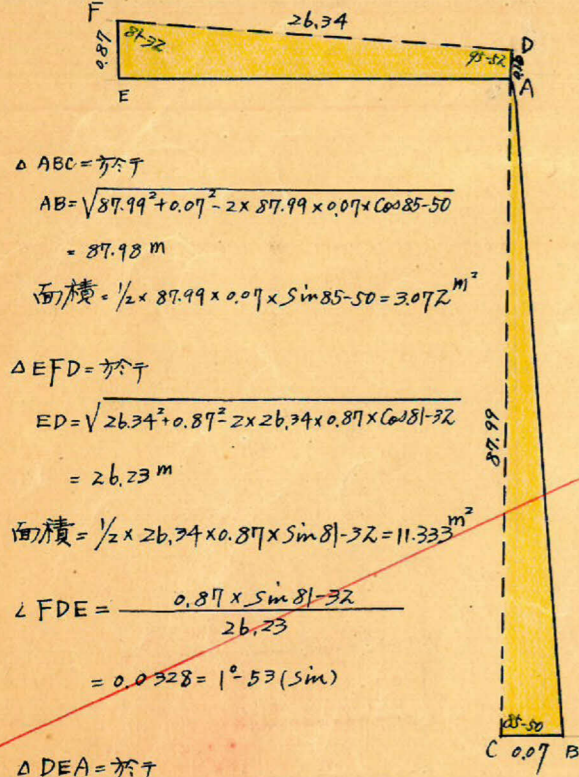 F
26.34
D
81-32
0.87
95-52
E
A
△ABC=於テ
AB=√87.99²+0.07²-2×87.99×0.07×Cos85-50
= 87.98 m
面積=1/2×87.99×0.07×Sin85-50=3.072 m²
△EFD=於テ
ED=√26.34²+0.87²-2×26.34×0.87×Cos81-32
= 26.23 m
面積=1/2×26.34×0.87×Sin81-32=11.333 m²
87.99
∠FDE= 0.87×Sin81-32
26.23
=0.0328=1°-53(Sin)
85-50
C 0.07 B
△DEA=於テ